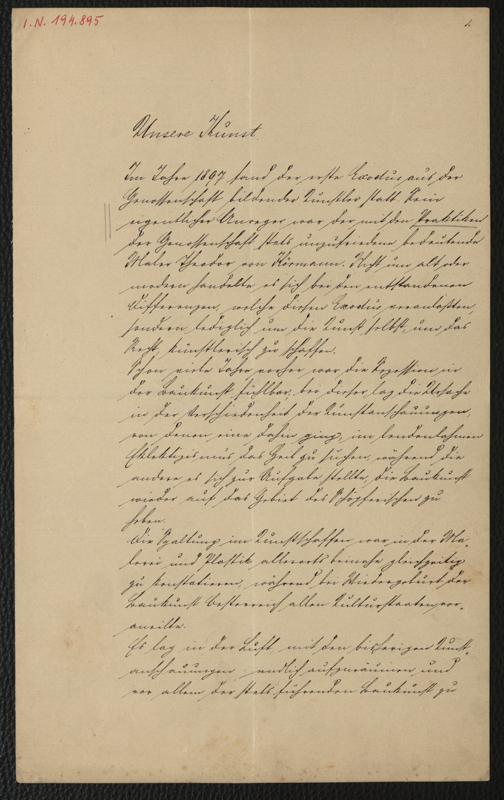 I.N. 194.895
Unsere Kunst
Im Jahre 1897 fand der erste Exodus aus der
Genossenschaft bildender Künstler statt. Sein
eigentlicher Anreger war der mit den Praktiken
der Genossenschaft stets unzufriedene bedeutende
Maler Theodor von Hörmann. Nicht um alt oder
modern handelte es sich bei den entstandenen
Differenzen, welche diesen Exodus veranlaßten,
sondern lediglich um die Kunst selbst, um das
Recht, künstlerisch zu schaffen.
Schon viele Jahre vorher war die Sezession in
der Baukunst fühlbar, bei dieser lag die Ursache
in der Verschiedenheit der Kunstanschauungen,
von denen eine dahin ging, im lendenlahmen
Eklektizismus das Heil zu suchen, während die
andere es sich zur Aufgabe stellte, die Baukunst
wieder auf das Gebiet des Schöpferischen zu
heben.
Die Spaltung im Kunstschaffen war in der Ma-
lerei und Plastik allerorts beinahe gleichzeitig
zu konstatieren, während bei Wiedergeburt der
Baukunst Oesterreich allen Kulturstaaten vor-
aneilte.
Es lag in der Luft, mit den bisherigen Kunst-
anschauungen endlich aufzuräumen und
vor allem der stets führenden Baukunst zu